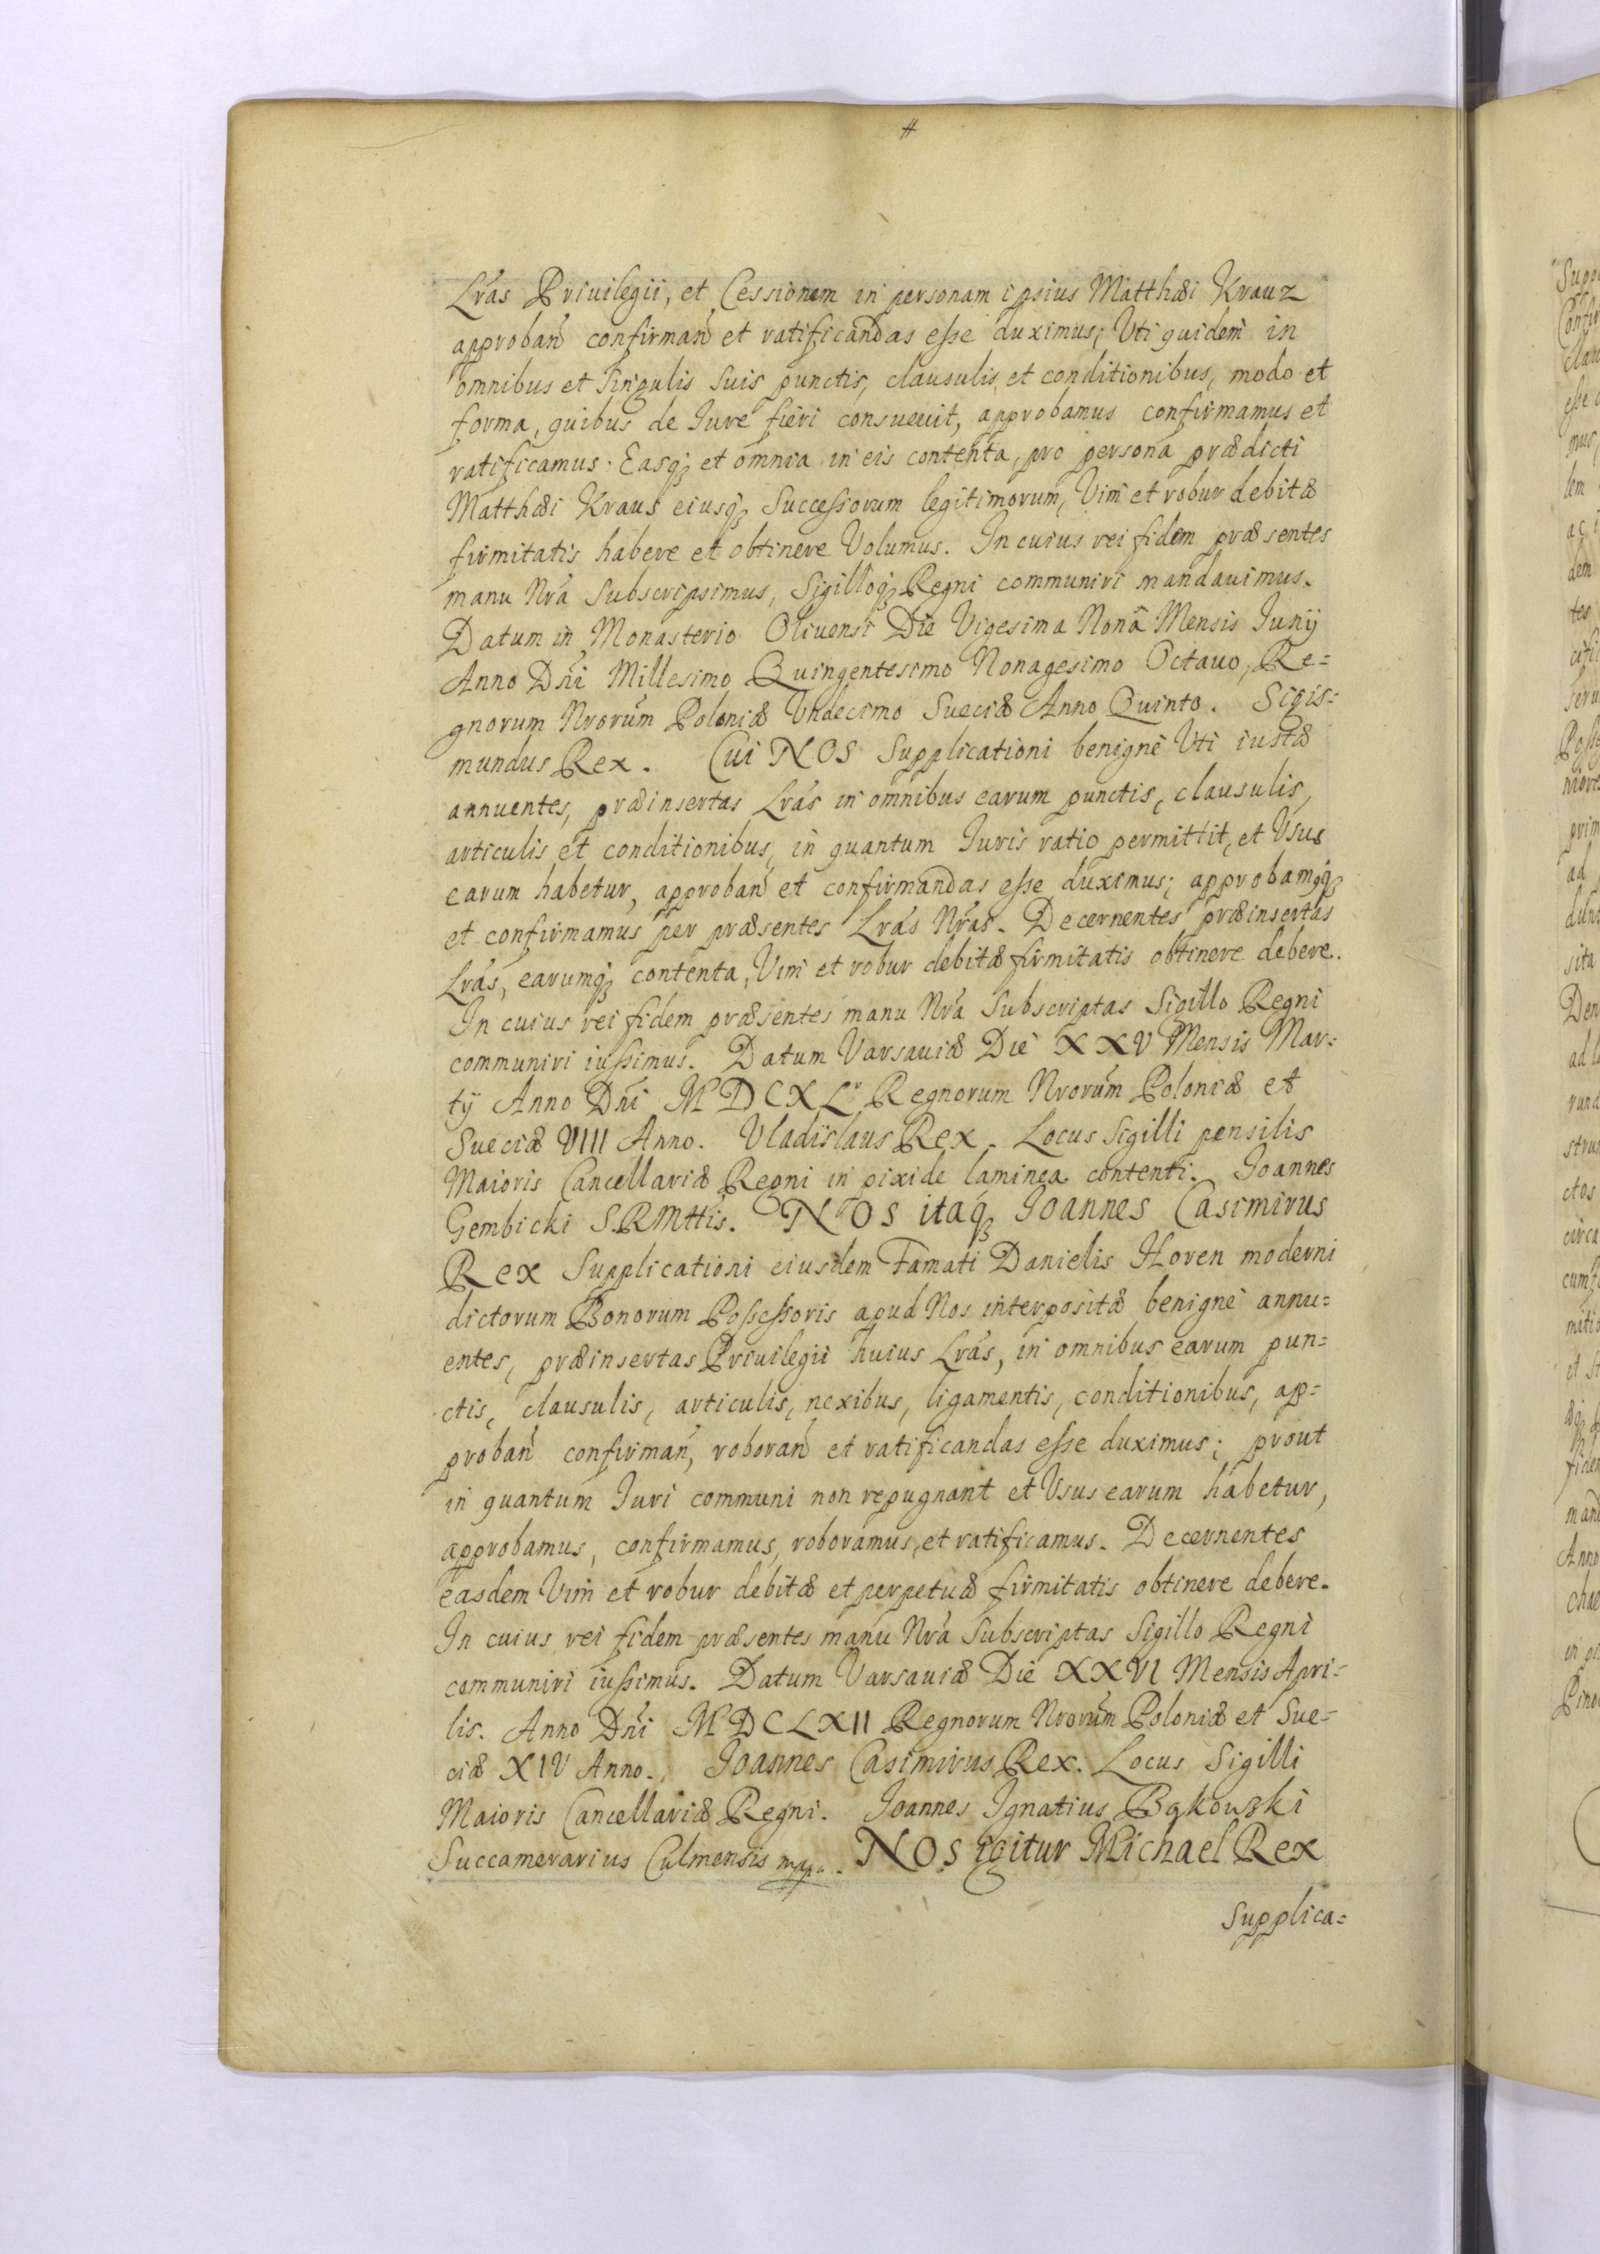 #
Lras Priuilegii, et Cessionem in personam ipsius Matthæi Krauz
approban confirman et ratificandas esse duximus; Uti quidem in
omnibus et singulis suis punctis, clausulis et conditionibus, modo et
forma, quibus de Iure fieri consueuit, approbamus confirmamus et
ratificamus. Easqꝫ et omnia in eis contenta, pro persona prædicti
Matthæi Kraus eiusqꝫ Successorum legitimorum, Vim et robur debitæ
firmitatis habere et obtinere Volumus. In cuius rei fidem præsentes
manu Nra Subscripsimus, Sigilloqꝫ Regni communiri mandauimus.
Datum in Monasterio Oliuensi Die Vigesima Nona Mensis Iunij
Anno Dni Millesimo Quingentesimo Nonagesimo Octauo, Re=
gnorum Nrorum Poloniæ Undecimo Sueciæ Anno Quinto. Sigis=
mundus Rex. Cui NOS Supplicationi benigne Uti iustæ
annuentes, præinsertas Lras in omnibus earum punctis, clausulis,
articulis et conditionibus, in quantum Iuris ratio permittit, et Usus
earum habetur, approban et confirmandas esse duximus; approbamqꝫ
et confirmamus per præsentes Lras Nras. Decernentes præinsertas
Lras, earumqꝫ contenta, Vim et robur debitæ firmitatis obtinere debere.
In cuius rei fidem præsentes manu Nra Subscriptas Sigillo Regni
communiri iussimus. Datum Varsauiæ Die XXV Mensis Mar=
tij Anno Dni MDCXL Regnorum Nrorum Poloniæ et
Sueciæ VIII Anno. Vladislaus Rex. Locus Sigilli pensilis
Maioris Cancellariæ Regni in pixide laminea contenti. Joannes
Gembicki SRMttis. NOS itaqꝫ Joannes Casimirus
Rex Supplicationi eiusdem Famati Danielis Hoven moderni
dictorum Bonorum Possessoris apud Nos interpositæ benigne annu=
entes, præinsertas Priuilegii huius Lras, in omnibus earum pun=
ctis, clausulis, articulis, nexibus, ligamentis, conditionibus, ap=
proban confirman, roboran et ratificandas esse duximus; prout
in quantum Iuri communi non repugnant et Usus earum habetur,
approbamus, confirmamus, roboramus, et ratificamus. Decernentes
easdem Vim et robur debitæ et perpetuæ firmitatis obtinere debere.
In cuius rei fidem præsentes manu Nra Subscriptas Sigillo Regni
communiri iussimus. Datum Varsauiæ Die XXVI Mensis Apri=
lis. Anno Dni MDCLXII Regnorum Nrorum Poloniæ et Sue=
ciæ XIV Anno. Joannes Casimirus Rex. Locus Sigilli
Maioris Cancellariæ Regni. Joannes Ignatius Bąkowski
Succamerarius Culmensis mppa. NOS igitur Michael Rex
Supplica=